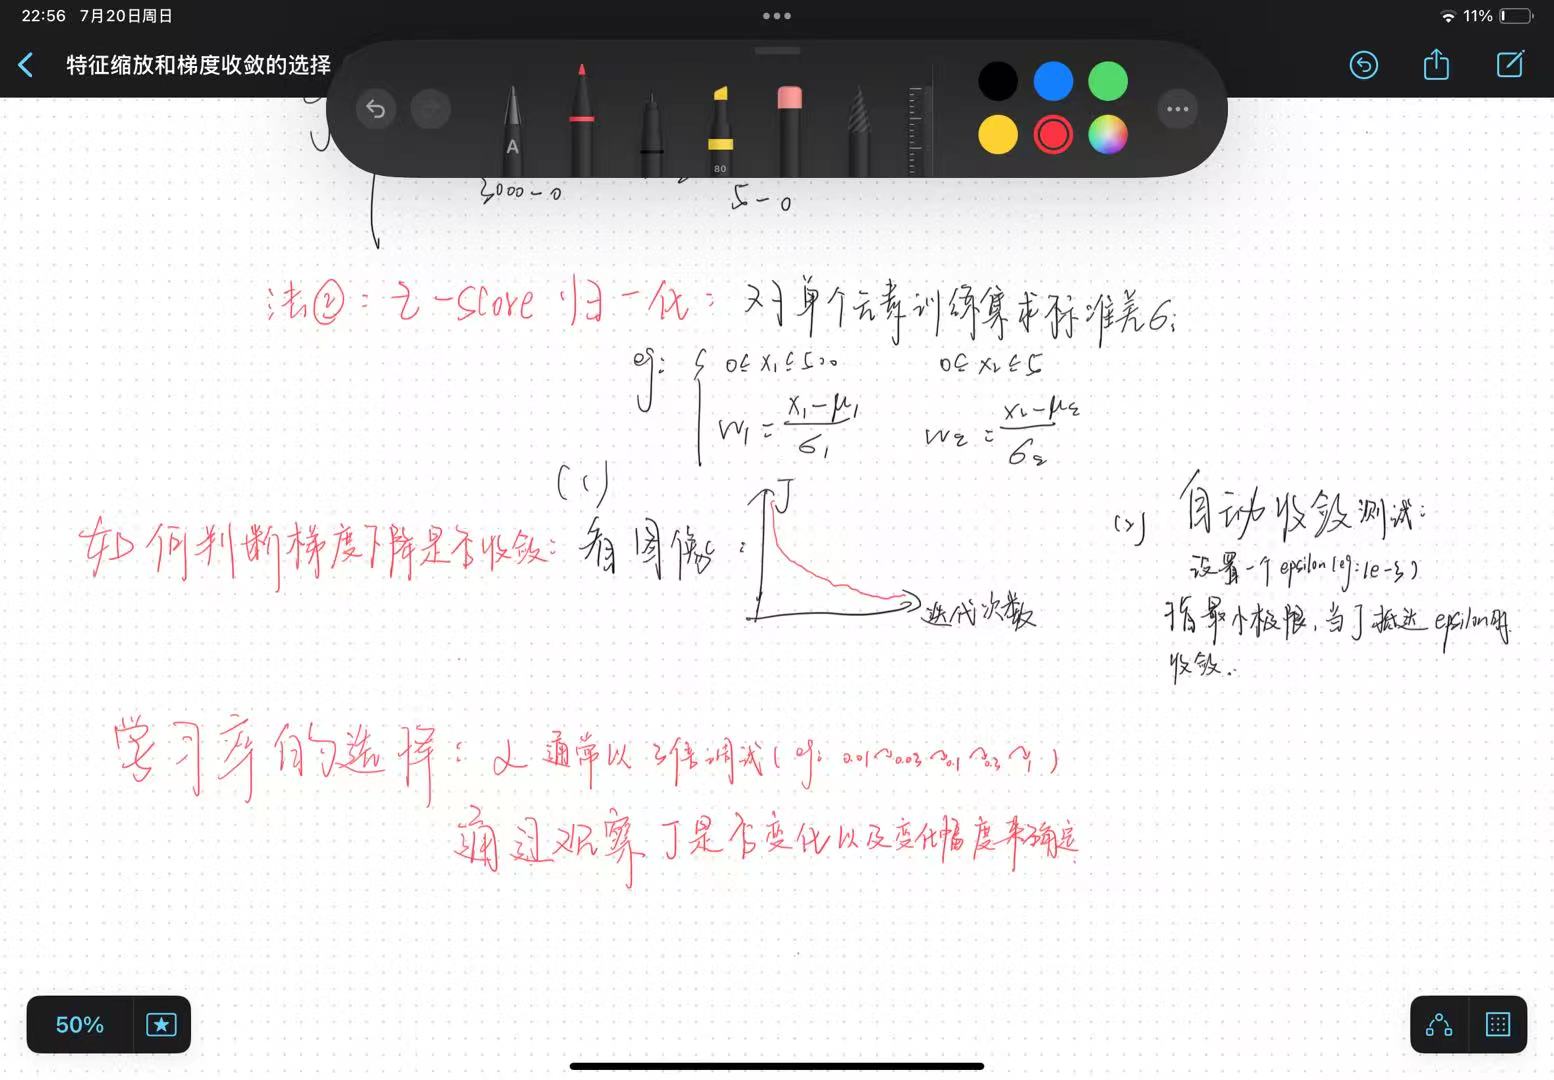 22:56 7月20日周日
11%
特征缩放和梯度收敛的选择
A
80
3000-0
5-0
法②：z-score 归一化：对单个元素训练集求标准差σ:
eg: { 0≤x₁≤500 0≤x₂≤5
w₁ = (x₁-μ₁)/σ₁ w₂ = (x₂-μ₂)/σ₂
如何判断梯度下降是否收敛：(1) 看图像：
J
迭代次数
(2) 自动收敛测试：
设置一个epsilon(eg:1e-3)
指最小极限，当J抵达epsilon时
收敛.
学习率的选择：α 通常以3倍调试(eg: 0.01~0.03~0.1~0.3~1)
通过观察J是否变化以及变化幅度来确定
50%